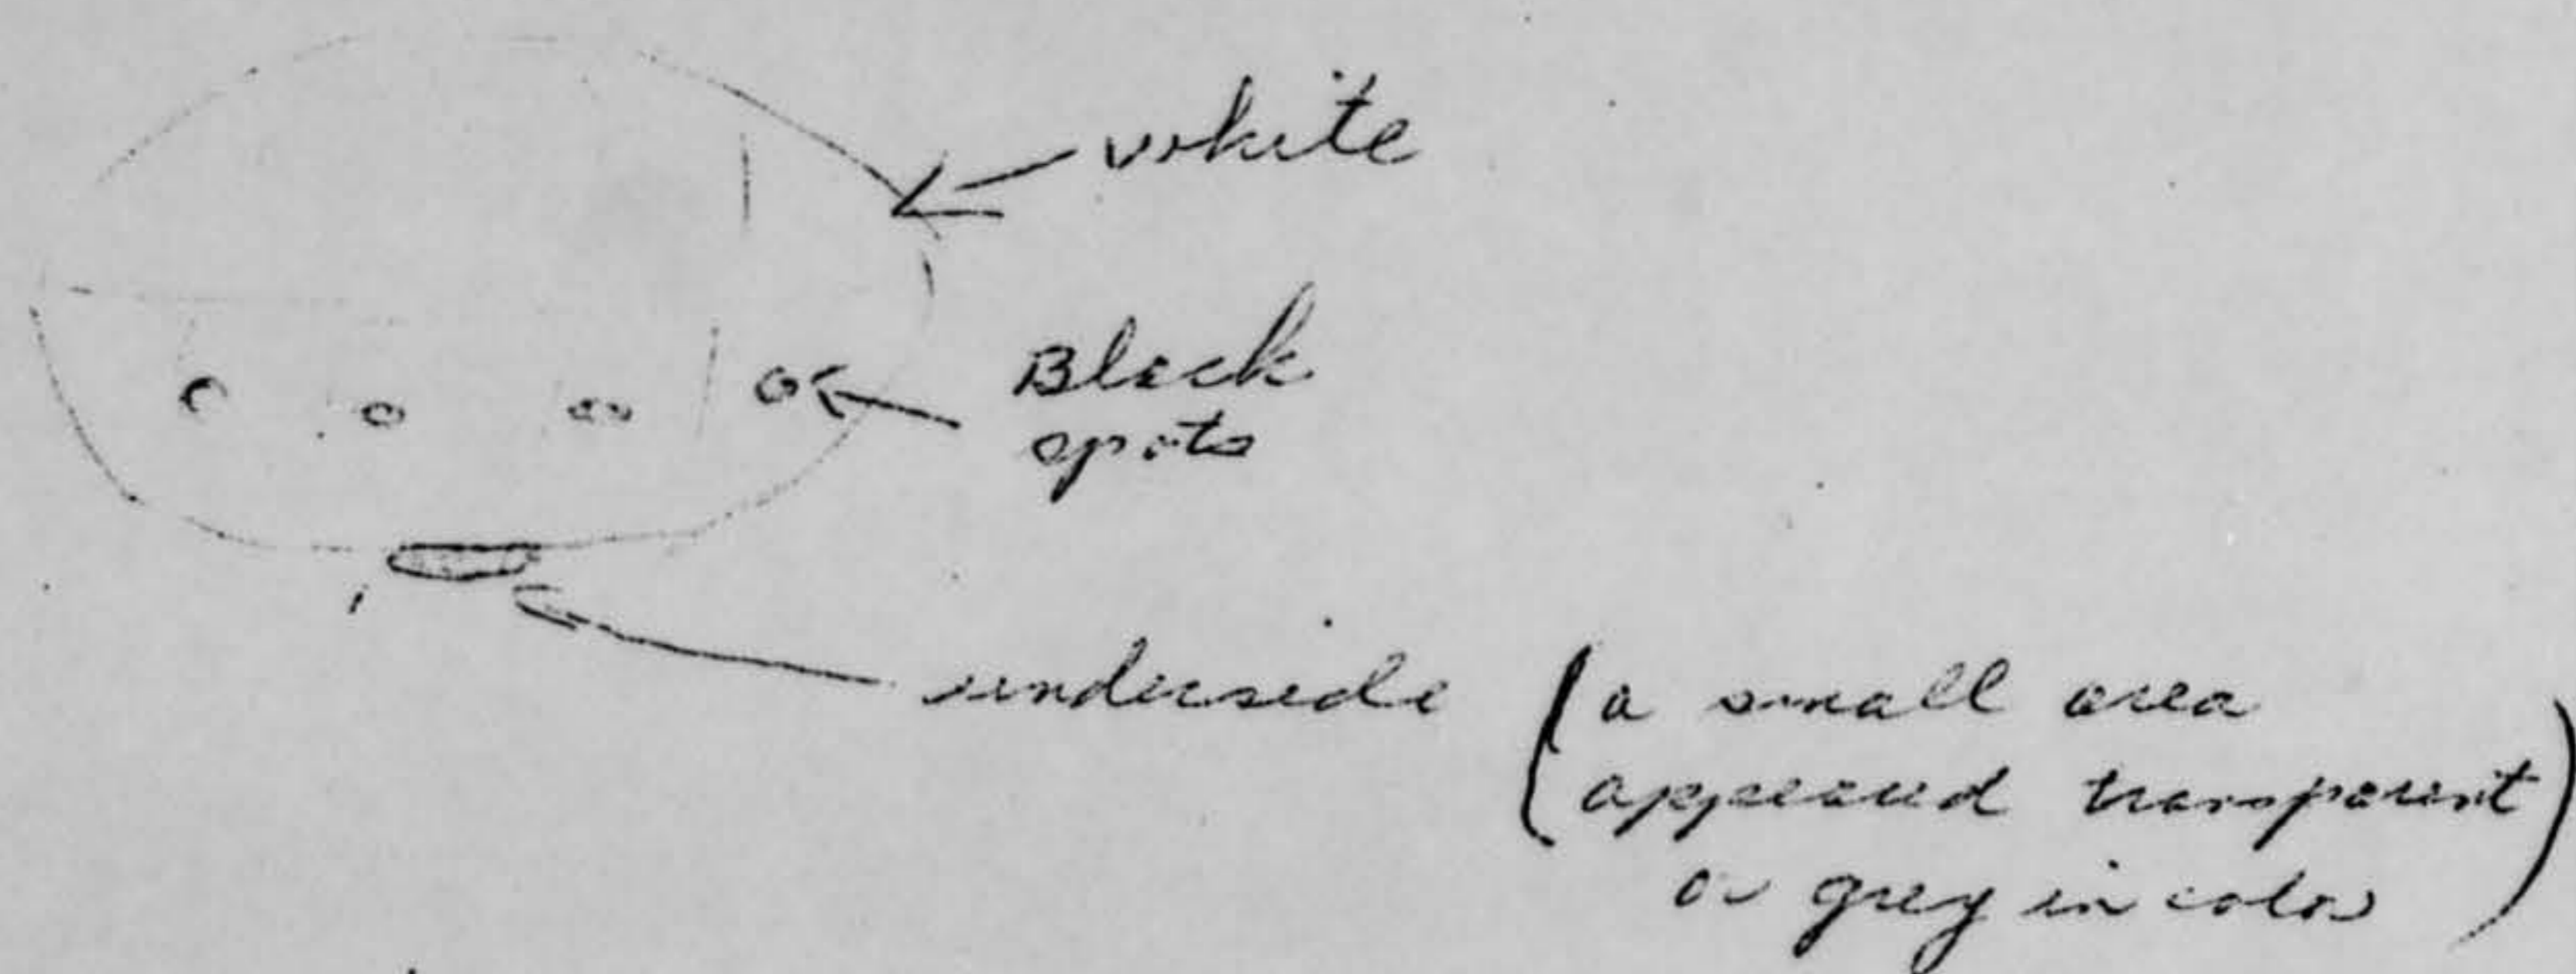 white
Black
spots
underside (a small area
appeared transparent
or grey in color)